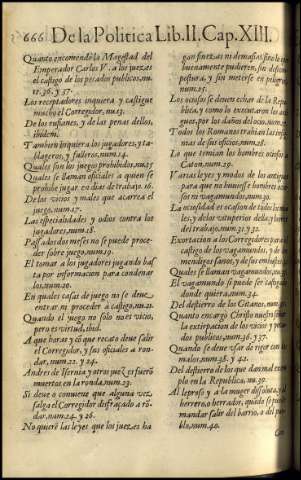 666 De la Politica Lib. II. Cap. XIII.
Quanto encomendò la Magestad del
Emperador Carlos V. a los juezes
el castigo de los pecados publicos, nu.
12. 36. y 37.
Los receptadores inquiera y castigue
mucho el Corregidor, nu. 13.
De los rufianes, y de las penas dellos,
ibidem.
Tambien inquiera los jugadores, y ta-
blageros, y fulleros, num. 14.
Quales son los juegos prohibidos, nu. 15
Quales se llaman oficiales a quien se
prohibe jugar en dias de trabajo. 16.
De los vicios y males que acarrea el
juego, num. 17.
Las especialidades y odios contra los
jugadores, num. 18.
Passados dos meses no se puede proce-
der sobre juego, num. 19.
El tomar a los jugadores jugando bas
ta por informacion para condenar
los, num. 20.
En quales casas de juego no se deue
entrar ni proceder à castigo, nu. 21.
Quando el juego no solo no es vicio,
pero es virtud, ibid.
A que horas y cō que recato deue salir
el Corregidor, y sus oficiales a ron-
dar, num. 22. y 24.
Andres de Isernia y otros juezes fuerō
muertos en la ronda, num. 23.
Si deue o conuiene que alguna vez
salga el Corregidor disfraçado a rō-
dar, num. 24. y 26.
No querrā las leyes que los juezes ha
gan finezas ni demasias, sino lo que
buenamente pudieren, sin descom-
postura, y sin meterse en peligros,
num. 25.
Los ociosos se deuen echar de la Repu-
blica, y como lo executaron los an-
tiguos, por los daños del ocio, nu. 27.
Todos los Romanos trahian las insig-
nias de sus oficios, num. 28.
Lo que temian los hombres ociosos a
Caton, num. 29.
Varias leyes y modos de los antiguos
para que no huuiesse hombres ocio-
sos, num. 30.
La ociosidad es ocasion de todos los ma-
les, y de los vituperios della, y loores
del trabajo, num. 31. y 32.
Exortacion a los Corregidores para el
castigo de los vagamundos, y de los
mendigos sanos, y de sus embustes,
Quales se llamen vagamundos, nu. 33.
El vagamundo si puede ser castigado
donde quiera, num. 34.
Del destierro de los Gitanos, num. 35.
Quanto encargò Christo nuestro señor
la extirpacion de los vicios y peca-
dos publicos, num. 36. y 37.
Quando se deue vsar de rigor con los
malos, num. 38. y 42.
Del destierro de los que dan mal exem-
plo en la Republica, nu. 39.
Al leproso y a la muger dissoluta, y al
herrero, o herrador, quādo se puede
mandar salir del barrio, o del pue-
blo, num. 40.